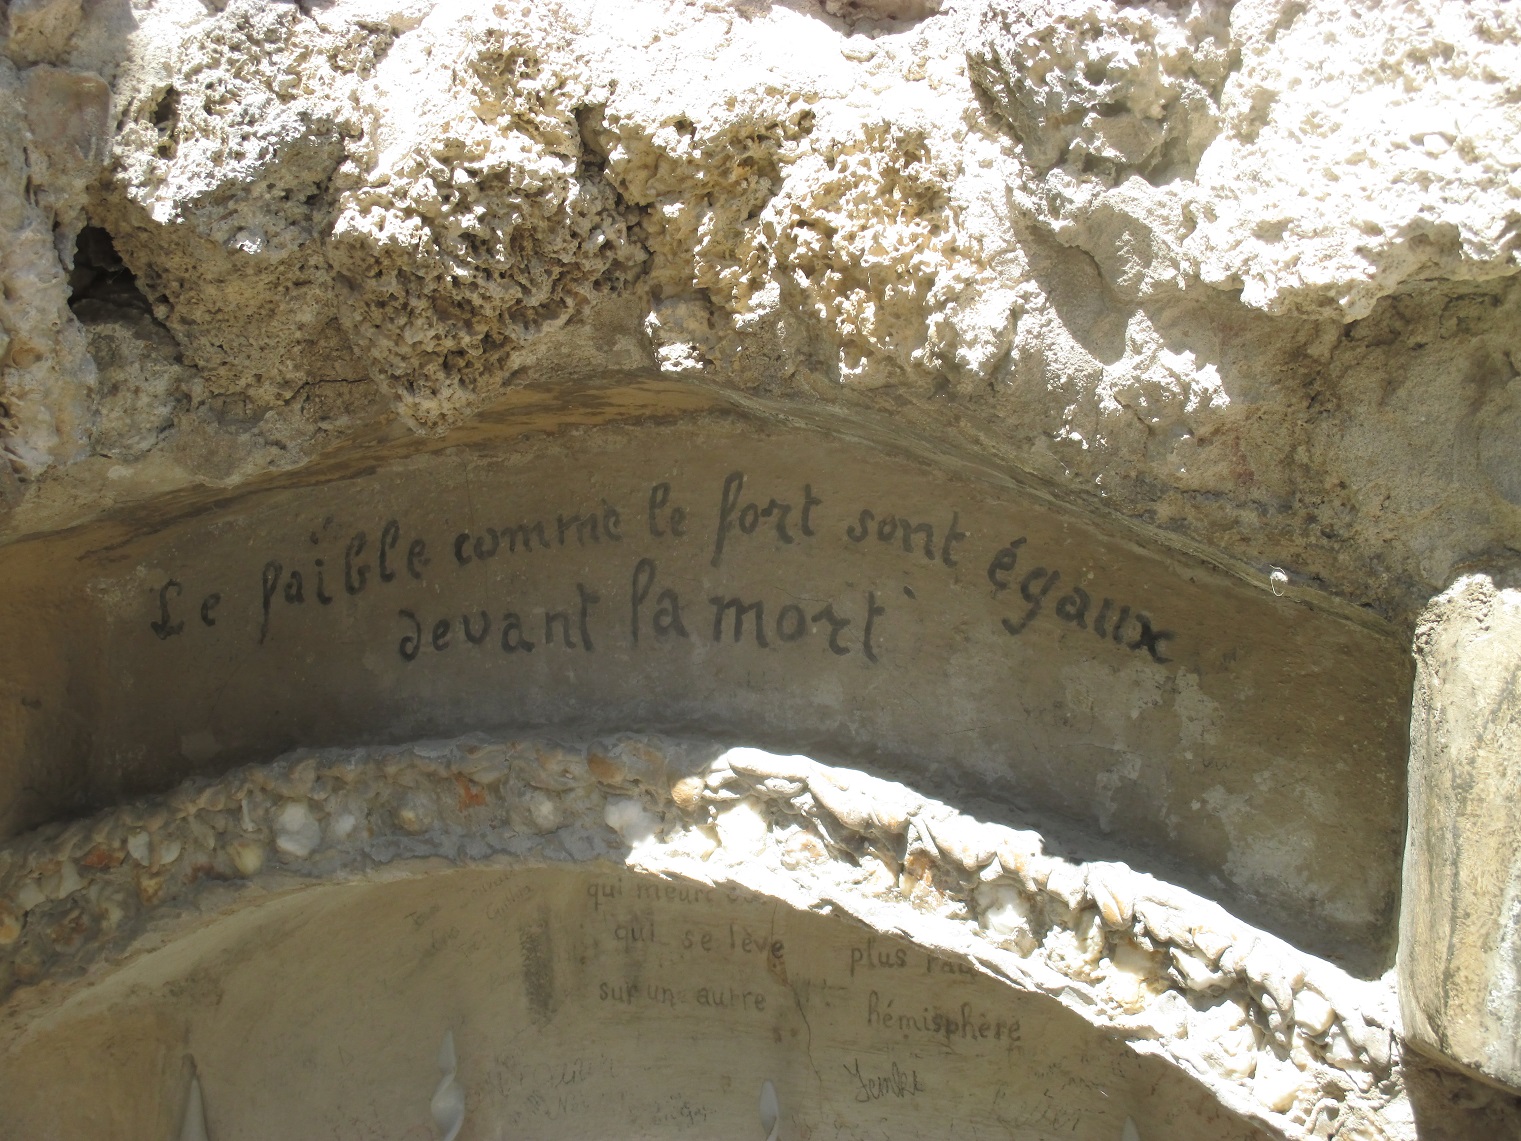 Le faible comme le fort sont égaux
devant la mort
qui meurt
qui se lève
plus
sur un autre
hémisphère